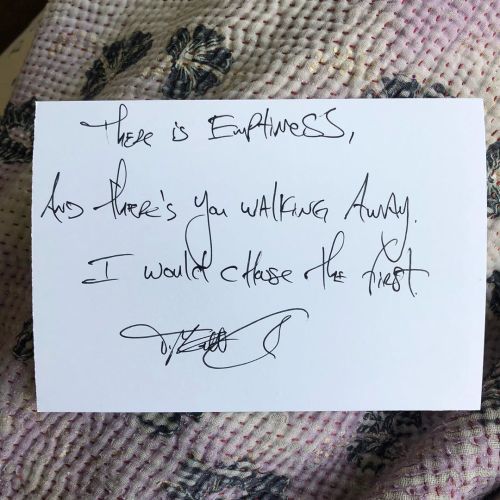 There is Emptiness,
And there's you walking Away.
I would chose the first.